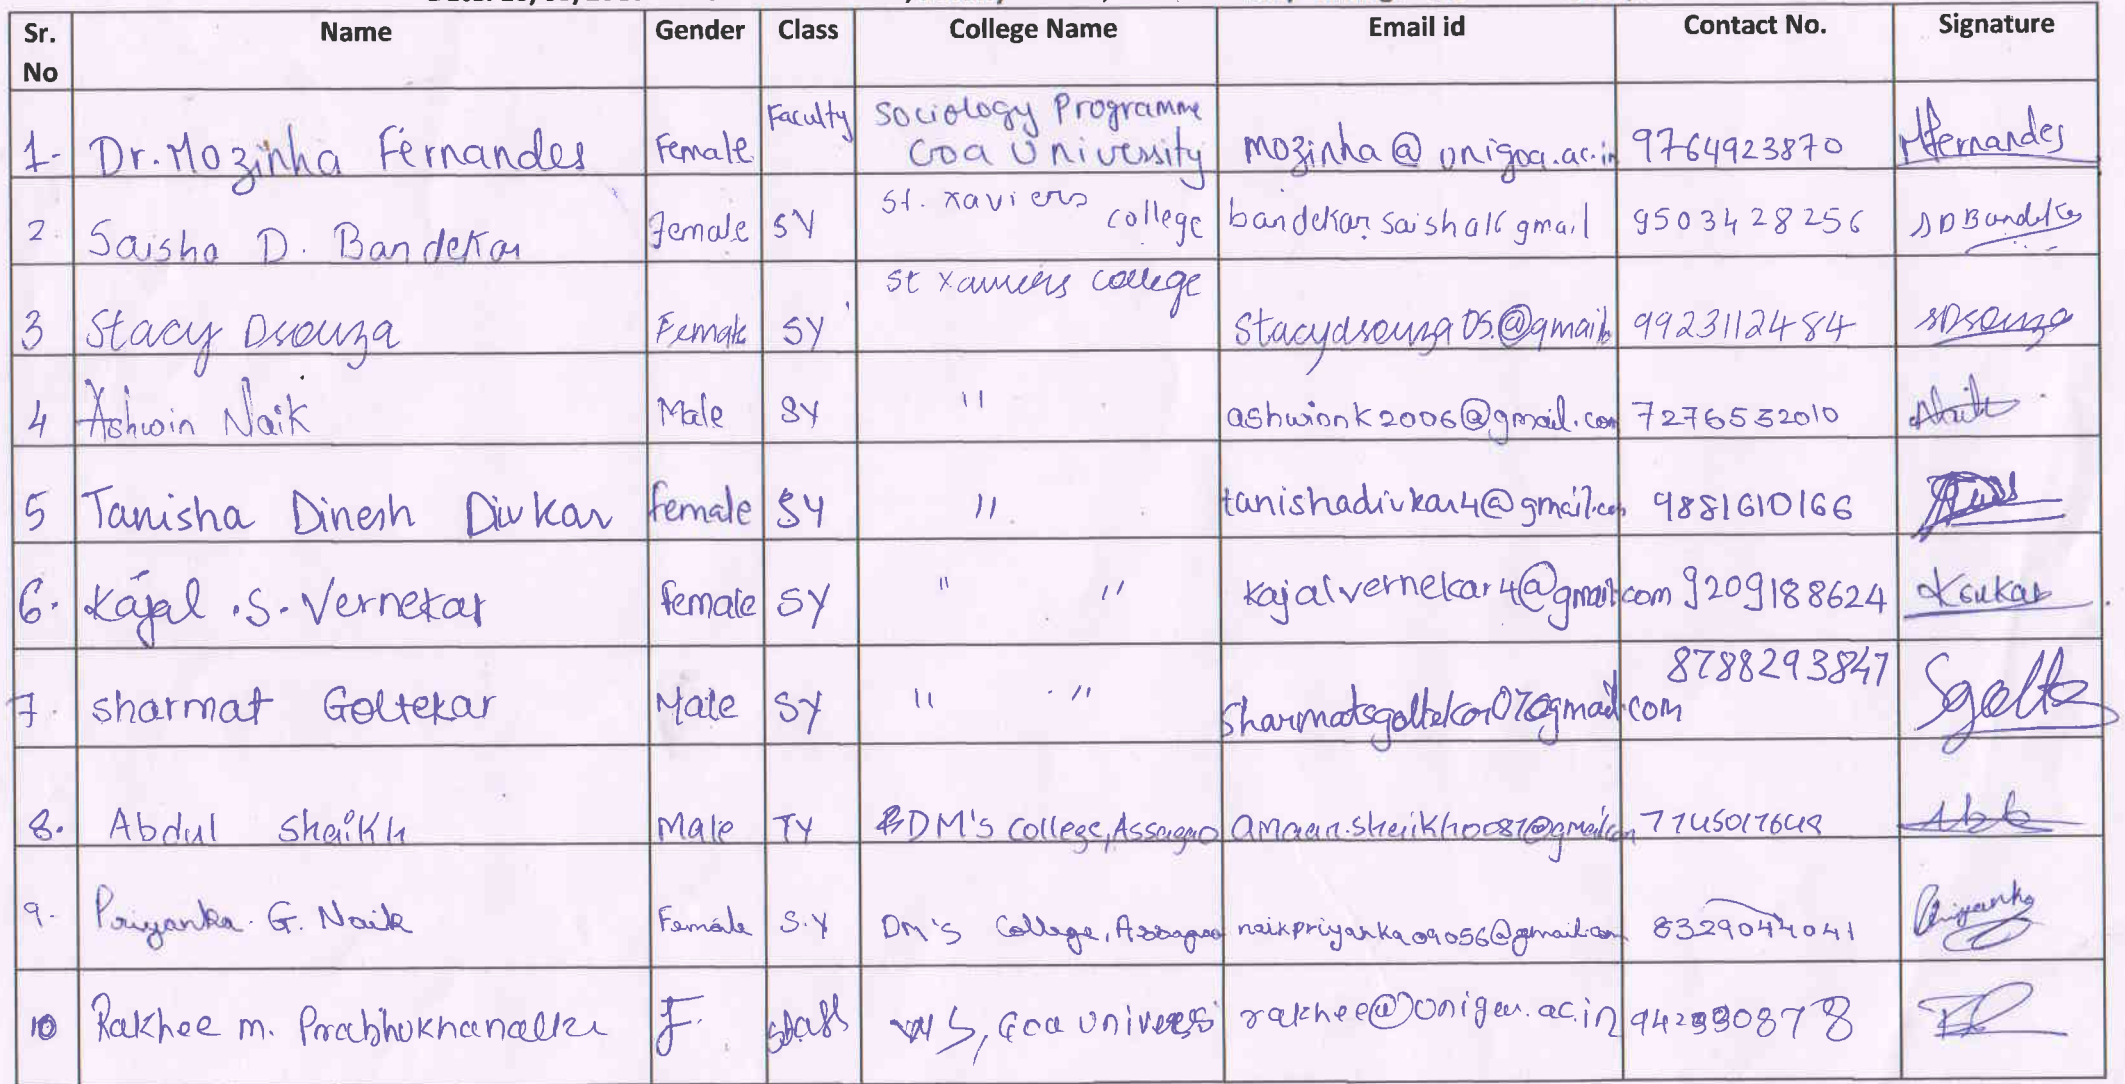 Sr. No | Name | Gender | Class | College Name | Email id | Contact No. | Signature
1- | Dr. Mozinha Fernandes | Female | Faculty | Sociology Programme Goa University | mozinha@unigoa.ac.in | 9764923870 | Mfernandes
2 | Saisha D. Bandekar | Female | SY | St. Xaviers College | bandekar.saisha16 gmail | 9503428256 | SDBandekar
3 | Stacy Dsouza | Female | SY | St Xaviers College | Stacydsouza05.@gmail | 9923112484 | SDsouza
4 | Ashwin Naik | Male | SY | " | ashwinnk2006@gmail.com | 7276532010 | ANaik
5 | Tanisha Dinesh Divkar | female | SY | " | tanishadivkar4@gmail.com | 9881610166
6. | Kajal .S. Vernekar | female | SY | " " | kajalvernekar4@gmail.com | 9209188624
7. | Sharmat Goltekar | Male | SY | " " | Sharmatsgoltekar07@gmail.com | 8788293847
8. | Abdul Shaikh | Male | TY | DM's College, Assagao | amaan.sheikh0087@gmail.com
9. | Priyanka G. Naik | Female | S.Y | DM's College, Assagao | naikpriyanka09056@gmail.com | 8329044041 | Priyanka
10 | Rakhee m. | F. | staff | Goa Univers |